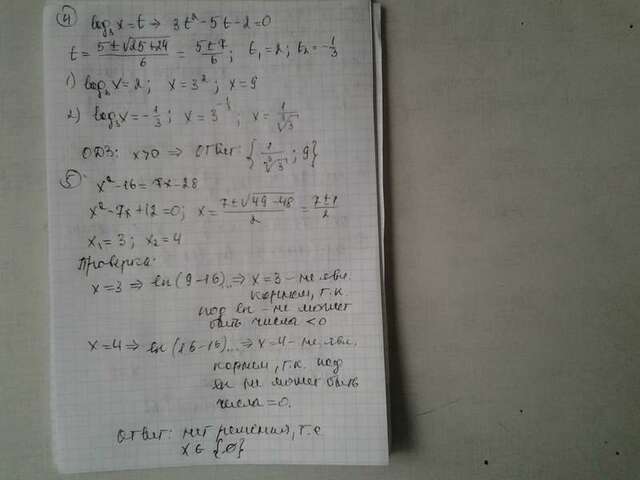 ④ log₃x=t ⇒ 3t²-5t-2=0
t = (5±√25+24)/6 = (5±7)/6; t₁=2; t₂=-1/3
1) log₃x=2; x=3²; x=9
2) log₃x=-1/3; x=3^(-1/3); x=1/∛3
ОДЗ: x>0 ⇒ ответ: {1/∛3; 9}
⑤ x²-16=7x-28
x²-7x+12=0; x=(7±√49-48)/2=(7±1)/2
x₁=3; x₂=4
Проверка:
x=3 ⇒ ln(9-16)... ⇒ x=3 - не явл.
корнем, т.к.
под ln - не может
быть числа <0
x=4 ⇒ ln(16-16)... ⇒ x=4 - не явл.
корнем, т.к. под
ln не может быть
числа =0.
Ответ: нет решения, т.е.
x∈{∅}